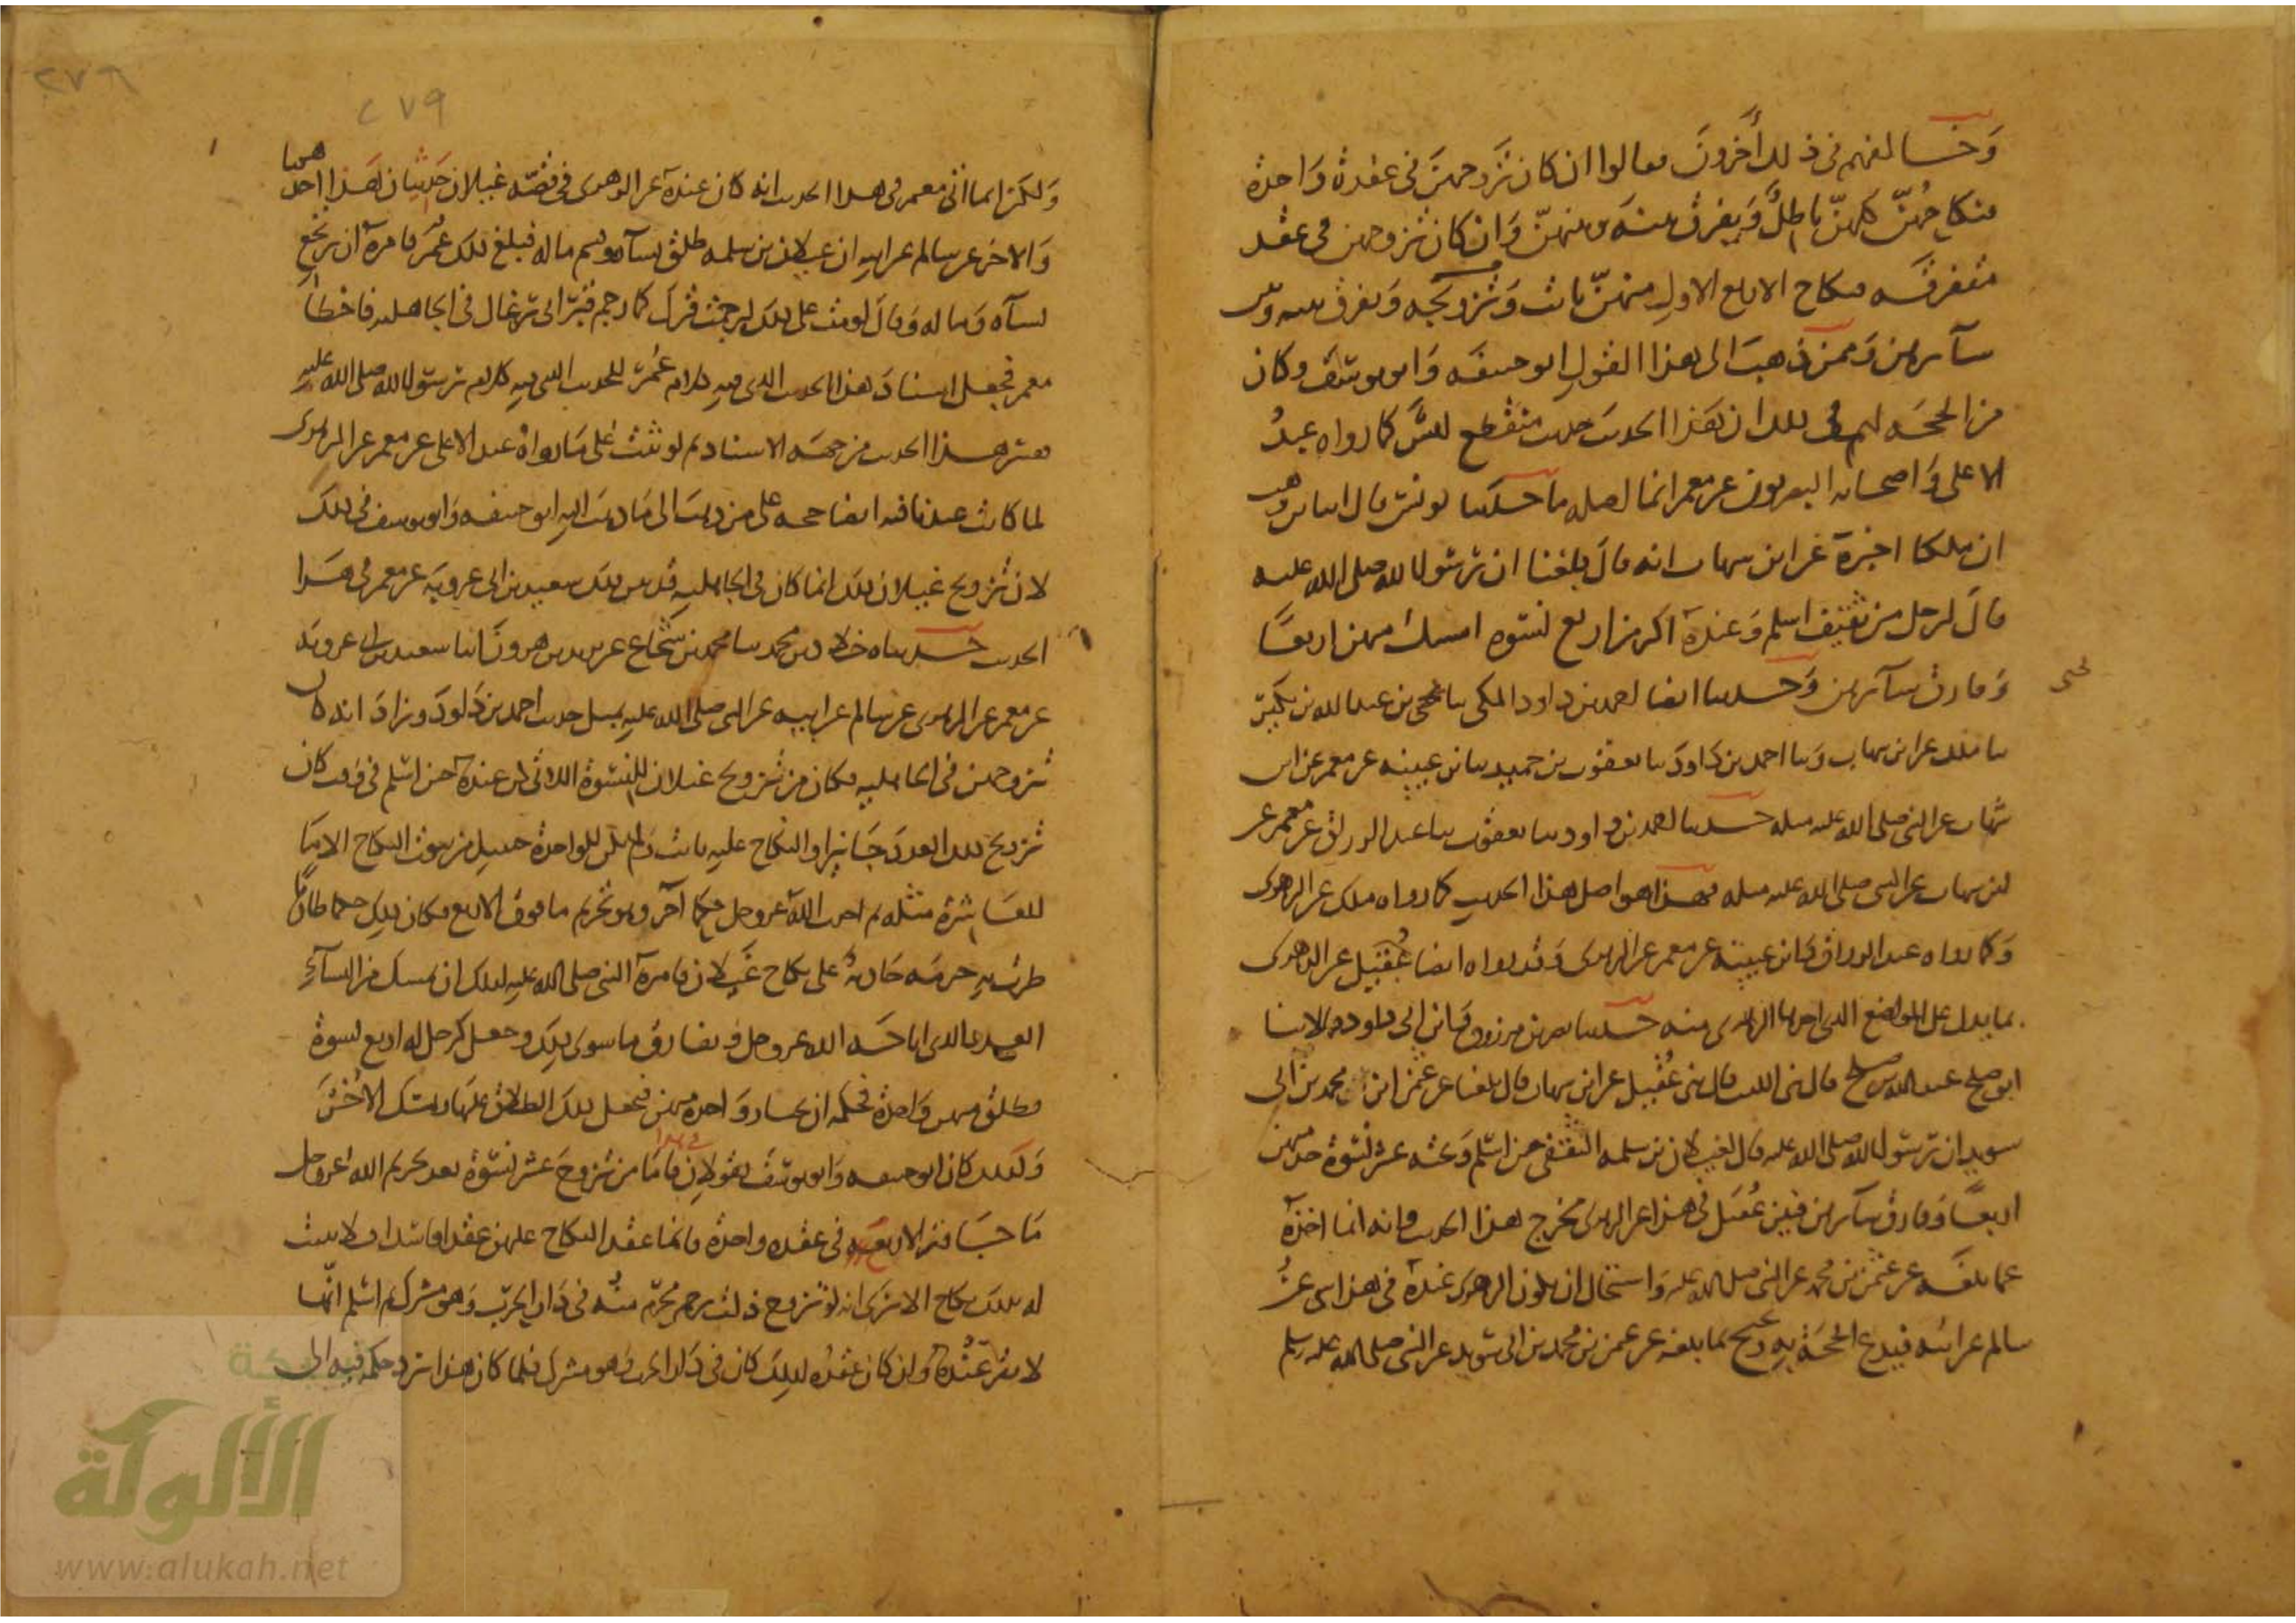 وَخَالفهم في ذلك أخرونَ فقالوا ان كان تزَوجهنَّ في عقدة وَاحدة
فنكاحُهنّ كلهنّ باطلٌ وَيفرق بينه وبينهنّ وَان كان تزوجهن في عقد
متفرقه فنكاح الاربع الاولِ منهنّ ثابت وَيفرق بينه وبين
سآئرهن وَممن ذَهبَ الى هذا القولِ ابو حنيفَه وَابو يوسُفَ وكان
من الحجَه لهم في ذلك ان هَذا الحديث حديث منقطع ليسَ كما رواه عبدُ
الاعلى وَاصحابه البصريون عن معمر انما اصله ما حدثنا يونس قال انا ابن وهب
ان ملكا اخبرهَ عن ابن شهاب انه قالَ بلغنا ان رسُول الله صلى الله عليه
قالَ لرجل من ثقيف اسلم وَعندهَ اكثر من اربع نسوه امسك منهن اربعًا
وَفارق سآئرهن وَحدثنا ايضا احمد بن داود المكي سا يحيى بن عبد الله بن بكير
يحيى
سا ملك عن ابن شهاب وَسا احمد بن دَاودَ سا يعقوب بن حميد سا بن عيينه عن معمر عن ابن
شهاب عن النبي صلى الله عليه مثله حدثنا احمد بن داود سا يعقوب سا عبد الرزاق عن معمر عن
ابن شهاب عن النبي صلى الله عليه مثله فهذا هو اصل هذا الحديث كما رواه ملك عن الزهري
وَكما رواه عبد الرزاق وَابن عيينه عن معمر عن الزهرى وَقد رواه ايضا عُقيل عن الزهرى
بما يدل على الموضع الذي اخذها الزهرى منه حدثنا نصر بن مرزوق وَابن ابي داود قالا سا
ابو صلح عبد الله بن صلح قال ني الليث قال ني عُقيل عن ابن شهاب قال بلغنا عن عثمن ابن محمد بن ابي
سويد ان رسُول الله صلى الله عليه قال لغيلان بن سلمه الثقفي حين اسلم وَتحته عشر نسْوة خذ منهن
اربعًا وَفارق سآئرهن فبين عُقيل في هذا عن الزهرى مخرج هذا الحديث وانه انما اخذه
عما بلغَه عن عثمن بن محمد عن النبي صلى الله عليه وَاستحال ان يكون الزهرى عندهَ في هذا شى عنْ
سالم عن ابيه فيدع الحجَة بِه ويحتج بما بلغه عن عثمن بن محمد بن ابي سويد عن النبي صلى الله عليه وسلم
٢٧٦
٢٧٩
وَلكن انما اتى معمر في هذا الحديث انه كان عندهَ عن الزهرى في قصّه غيلان حَديثان هَذا احدهما
وَالاخر عن سالم عن ابيه ان غيلان بن سلمه طلق نسآه وقسم ماله فبلغ ذلك عُمَر فامرهَ ان يرتجع
نسآه وَماله وَقالَ لو مت على ذلك لرجمت قبرك كما رجم قبر ابى رغال في الجاهليه فاخطأ
معمر فجعل اسنادَ هذا الحديث الذي فيه كلام عُمرَ للحديث الذي فيه كلام رسُول الله صلى الله عليه
هذا الحديث من جهَه الاسناد ثم لو ثبت على مَا رواهُ عبد الاعلى عن معمر عن الزهرى
لما كانت عندنا فيه ايضا حجه على من ذهبَ الى مَا ذهبَ اليه ابو حنيفه وَابو يوسف في ذلك
لان تزويج غيلان ذلك انما كان في الجاهليه قد بين ذلك سعيد بن ابي عروبه عن معمر في هَذا
الحديث حدثناه خلاد بن محمد سا محمد بن شجاع عن يزيد بن هرونَ انا سعيد بن ابي عروبَه
عن معمر عن الزهرى عن سالم عن ابيه عن النبي صلى الله عليه بمثل حديث احمد بن دَاودَ وزادَ انه كان
تزوجهن في الجاهليه فكان من تزويج غيلان للنسوة اللاتي كن عندهَ حين اسلم في وقت كان
تزويج ذلك العددَ جَايزا والنكاح عليه ثابت وَلم يكن للواحدة حينئذ من ثبوت النكاح الا مَا
للعَاشرة مثله ثم احدث اللهُ عز وجل حكمًا آخر وهو تحريم ما فوق الاربع فكان ذلك حكما طاريًا
طرَت به حرمَه حَادثة على نكاح غَيلان فامرهَ النبي صلى الله عليه لذلك ان يمسك من النسآءِ
العدد الذي اباحَه الله عز وجل ويفارق ما سوى ذلك وجعل كرجل له اربع نسوة
فطلق منهن وَاحدة فحكمه ان يختار وَاحدة منهن فيجعل ذلك الطلاق عليها ويمسك الاُخَرَ
وَكذلك كان ابو حنيفه وَابو يوسفَ يقولان في هذا فامَا من تزوجَ عشر نسوَة بعد تحريم الله عز وجل
مَا جَاوز الاربع في عقده واحدة فانما عقد النكاح عليهن عقدا فاسدا فلا يثبت
له بذلك نكاح الا ترَى انه لو تزوج ذات رحم محرّم منه في دَار الحرْب وَهو مشرك ثم اسلم انّها
لا تقر عنده وَان كان عقدُه لذلك كان في دَار الحرب وَهو مشرك فلما كان هذا يرد حكمه فيه الى
شبكة
الألوكة
www.alukah.net